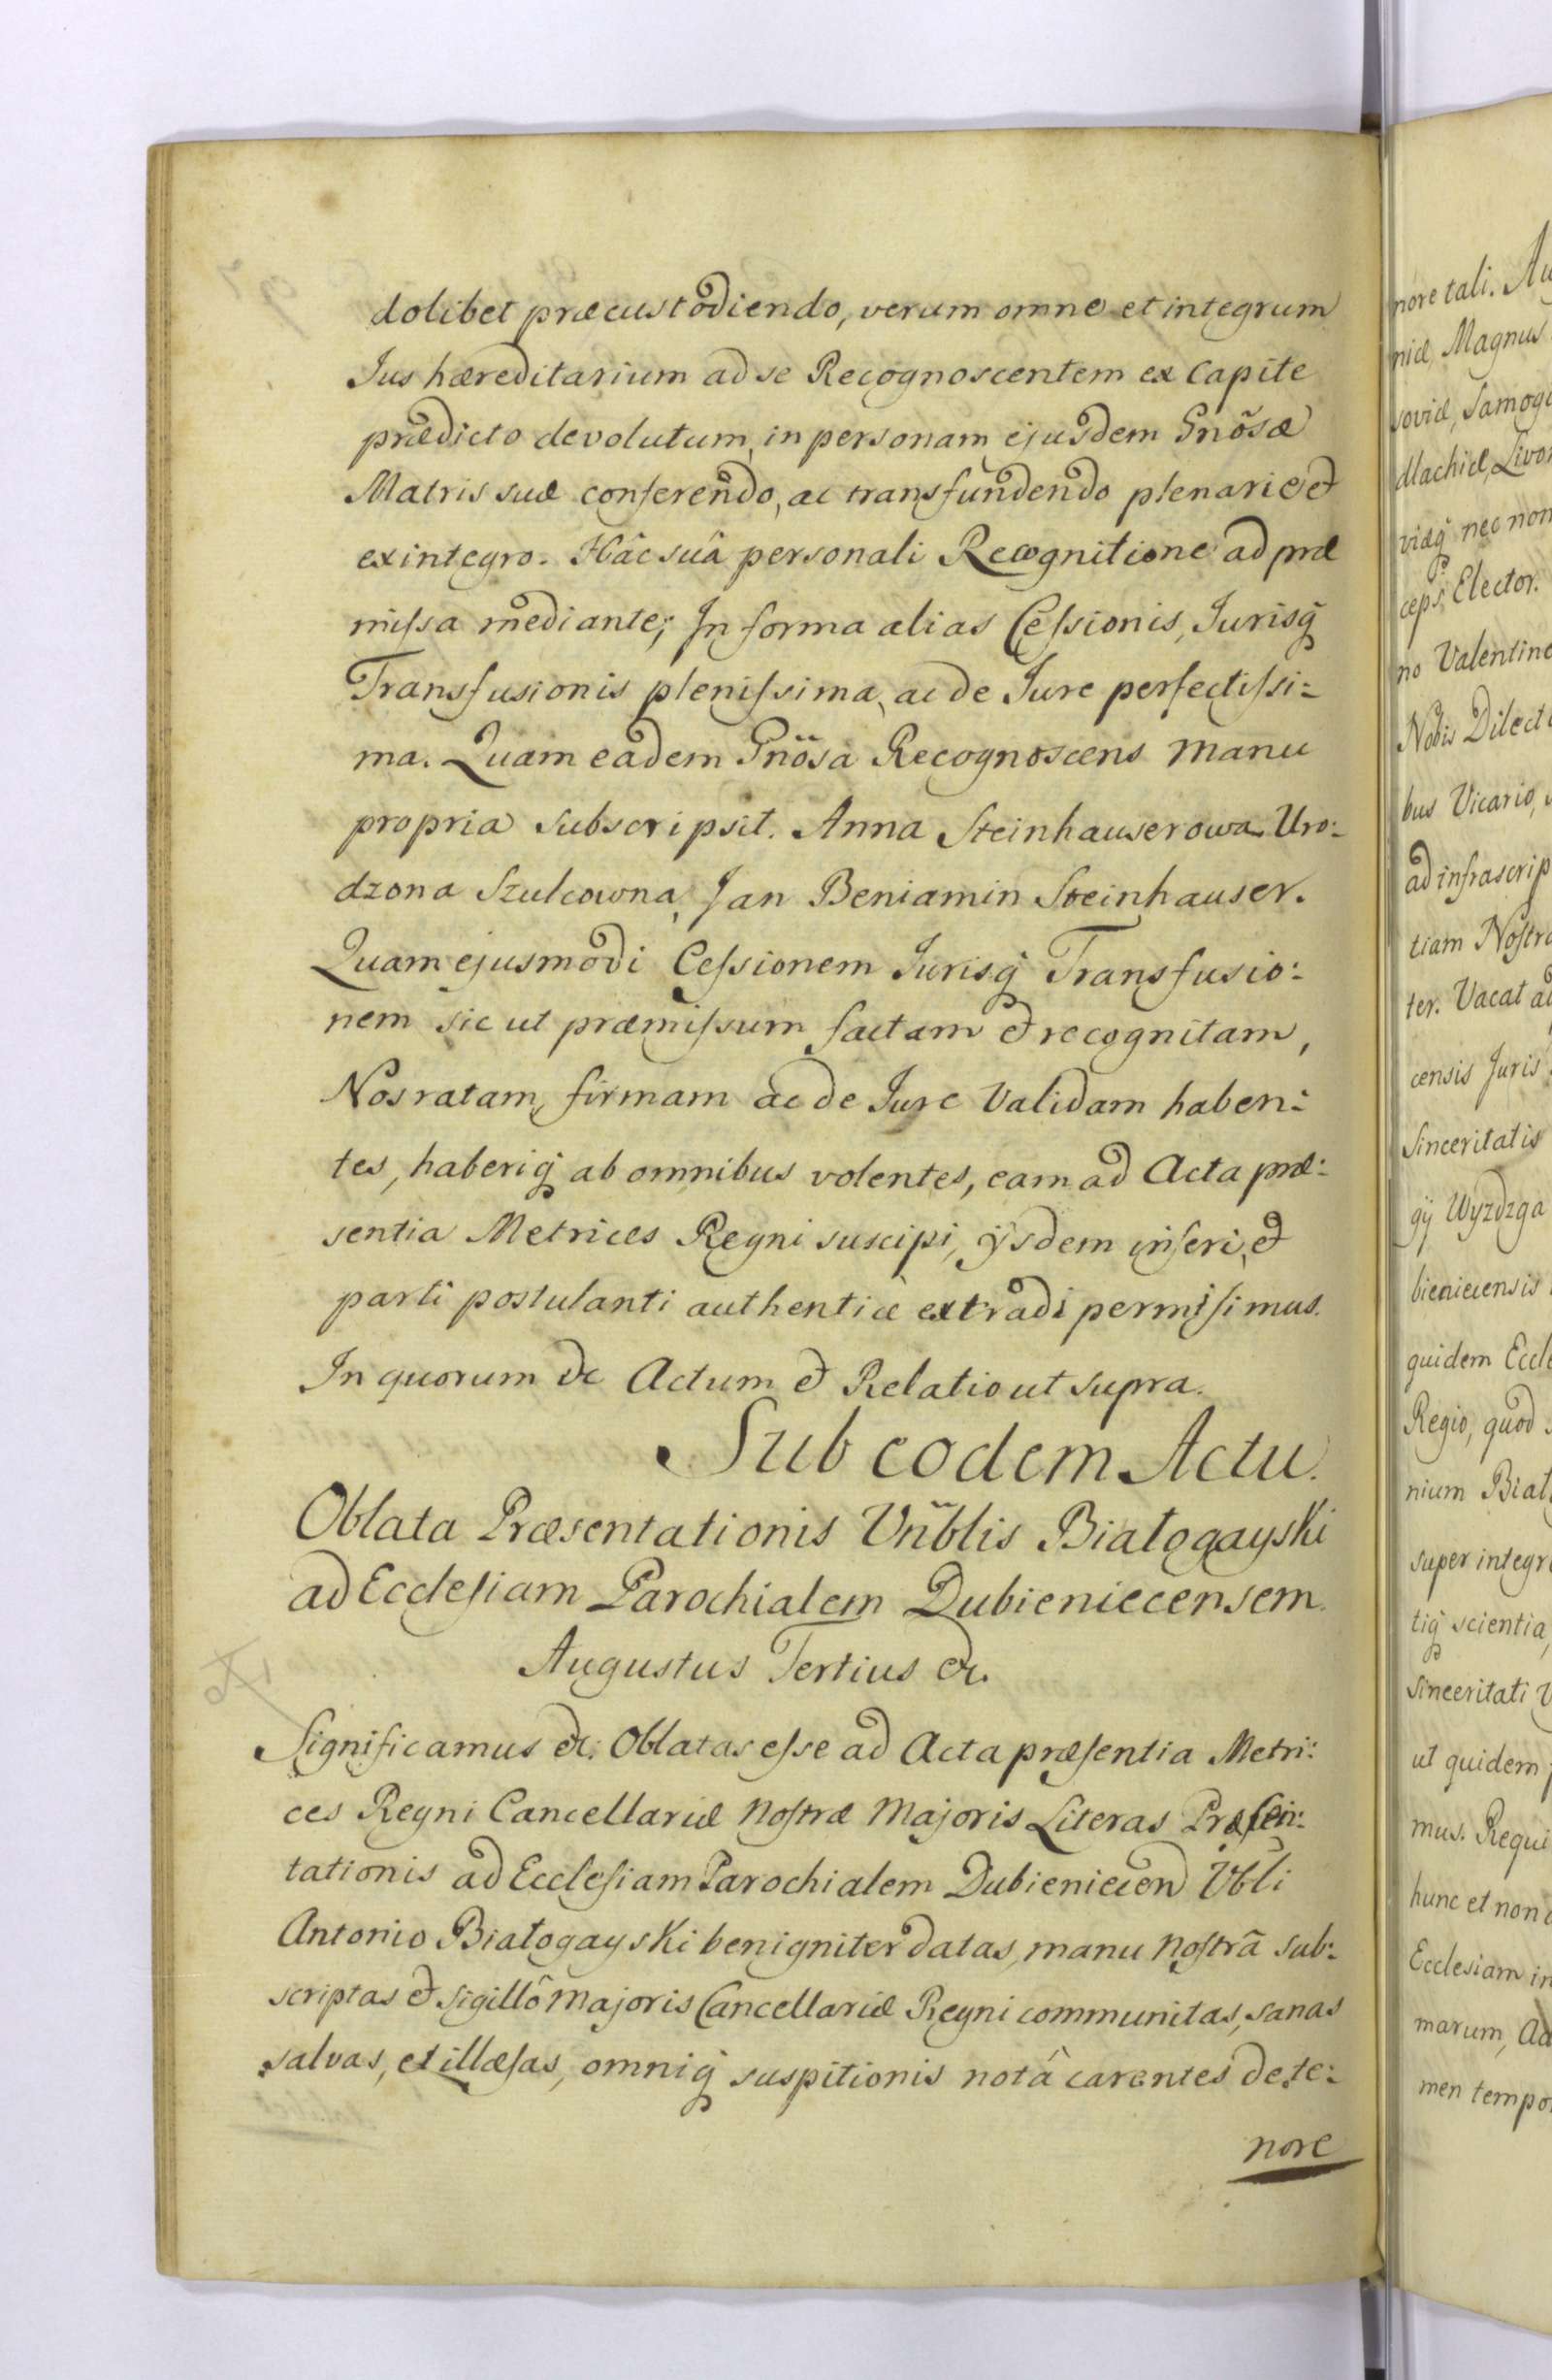 dolibet præcustodiendo, verum omne et integrum
Jus hæreditarium ad se Recognoscentem ex Capite
prædicto devolutum, in personam ejusdem Gñosæ
Matris suæ conferendo, ac transfundendo plenarie et
ex integro. Hâc suâ personali Recognitione ad præ
missa mediante; In forma alias Cessionis, Jurisq́
Transfusionis plenissima, ac de Jure perfectissi=
ma. Quam eadem Gñosa Recognoscens manu
propria subscripsit. Anna Steinhauserowa Uro:
dzona Szulcowna, Jan Beniamin Steinhauser.
Quam ejusmodi Cessionem Jurisq́ Transfusio:
nem sic ut præmissum factam et recognitam,
Nos ratam, firmam ac de Jure Validam haben:
tes, haberiq́ ab omnibus volentes, eam ad Acta præ:
sentia Metrices Regni suscipi, ÿsdem inseri, et
parti postulanti authenticè extradi permisimus.
In quorum &c Actum et Relatio ut supra.
Sub eodem Actu.
Oblata Præsentationis Vñblis Białogayski
ad Ecclesiam Parochialem Dubieniecensem.
Augustus Tertius &c.
Significamus &c. Oblatas esse ad Acta præsentia Metri:
ces Regni Cancellariæ Nostræ Majoris Literas Præsen:
tationis ad Ecclesiam Parochialem Dubieniecen Vbli
Antonio Białogayski benigniter datas, manu Nostrâ sub:
scriptas et sigillô Majoris Cancellariæ Regni communitas, sanas
salvas, et illæsas, omniq́ suspitionis notâ carentes de te:
nore
nore tali. Au
niæ, Magnus
soviæ, Samogi
dlachiæ, Livon
viæq́ nec non
ceps Elector.
no Valentino
Nobis Dilect
bus Vicario,
ad infrascrip
tiam Nostra
ter. Vacat ad
censis Juris
Sinceritatis
gÿ Wyzdzga
bieniecensis
quidem Eccle
Regio, quod
nium Biał
super integri
tiq́ scientia,
Sinceritati V
ut quidem
mus. Requi
hunc et non a
Ecclesiam in
marum, Ad
men tempo